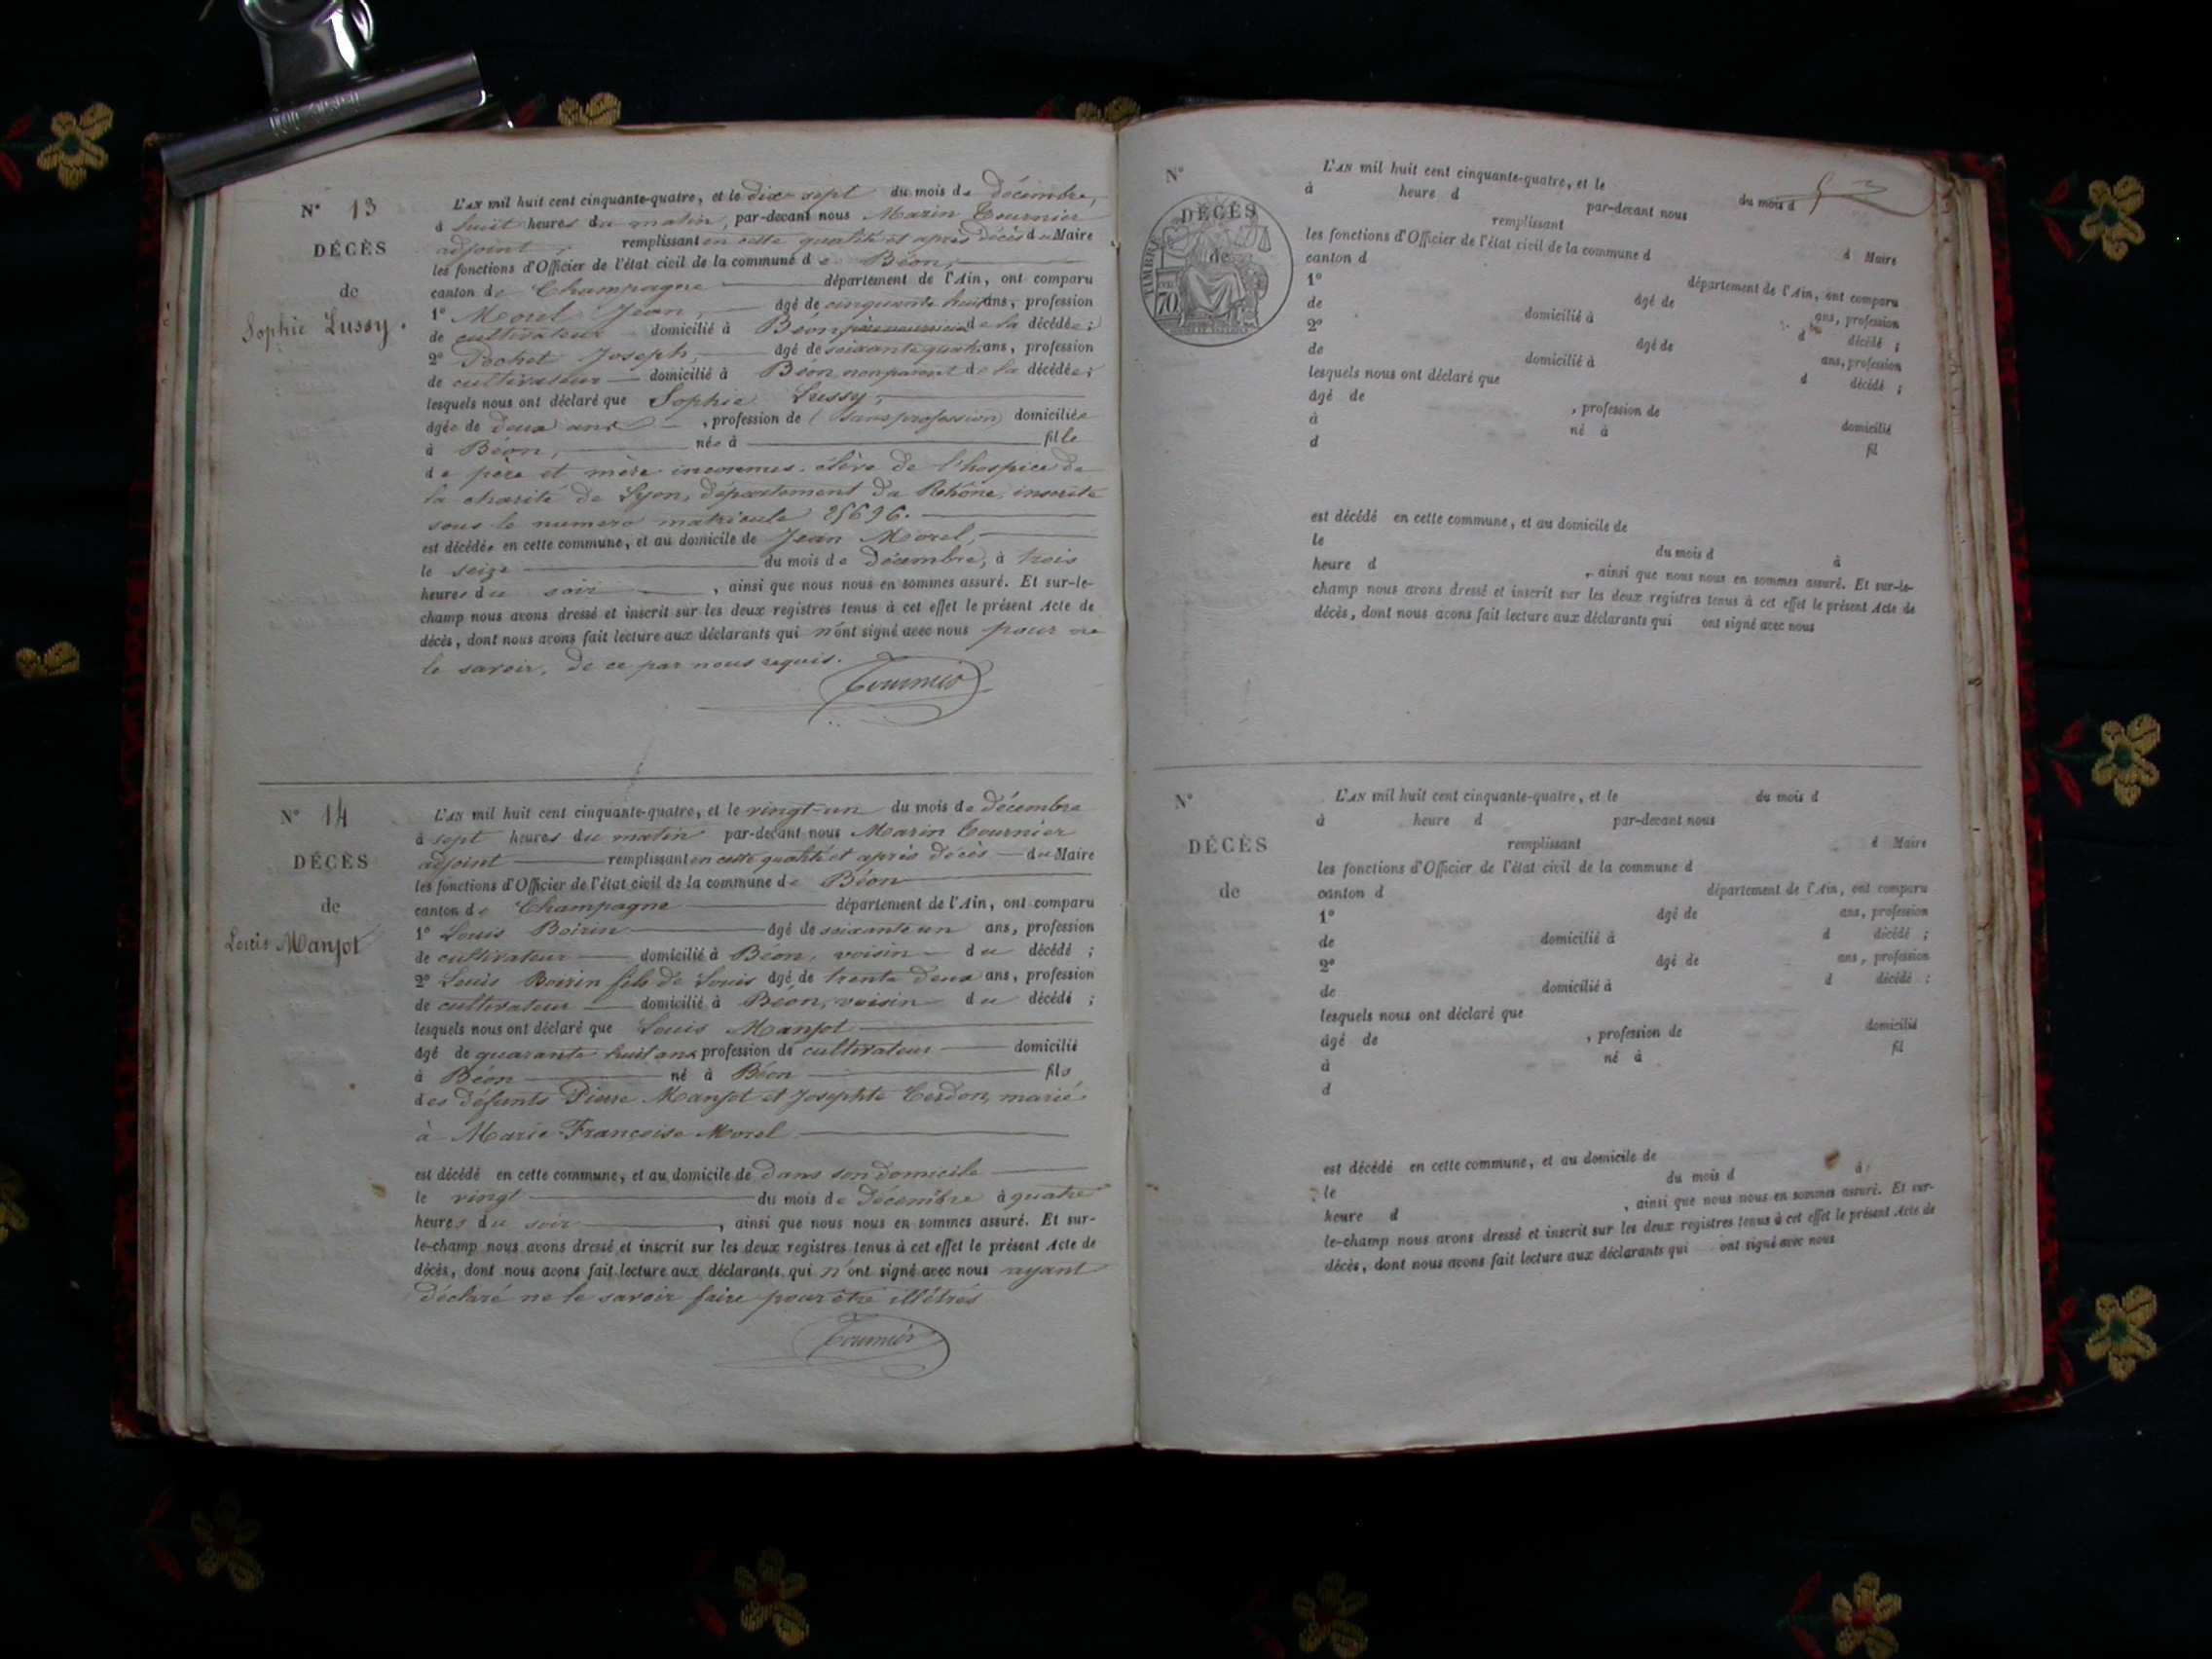 N° 13
DÉCÈS
de
Sophie Lussy.
L'AN mil huit cent cinquante-quatre, et le dix-sept du mois de décembre,
à huit heures du matin, par-devant nous Marin Tournier
adjoint, remplissant en cette qualité et après décès du Maire
les fonctions d'Officier de l'état civil de la commune de Béon,
canton de Champagne département de l'Ain, ont comparu
1° Morel Jean, âgé de cinquante huit ans, profession
de cultivateur domicilié à Béon, de la décédée;
2° Pochet Joseph, âgé de soixante quatre ans, profession
de cultivateur domicilié à Béon, non parent de la décédée;
lesquels nous ont déclaré que Sophie Lussy,
âgée de deux ans, profession de (sans profession) domiciliée
à Béon, née à fille
de père et mère inconnus, élève de l'hospice de
la charité de Lyon, département du Rhône, inscrite
sous le numéro matricule 25696.
est décédée en cette commune, et au domicile de Jean Morel,
le seize du mois de Décembre, à trois
heures du soir, ainsi que nous nous en sommes assuré. Et sur-le-
champ nous avons dressé et inscrit sur les deux registres tenus à cet effet le présent Acte de
décès, dont nous avons fait lecture aux déclarants qui n'ont signé avec nous pour ne
le savoir, de ce par nous requis.
Tournier
N° 14
DÉCÈS
de
Louis Manjot
L'AN mil huit cent cinquante-quatre, et le vingt-un du mois de décembre
à sept heures du matin par-devant nous Marin Tournier
adjoint remplissant en cette qualité et après décès du Maire
les fonctions d'Officier de l'état civil de la commune de Béon
canton de Champagne département de l'Ain, ont comparu
1° Louis Boirin âgé de soixante un ans, profession
de cultivateur domicilié à Béon, voisin du décédé;
2° Louis Boirin fils de Louis âgé de trente deux ans, profession
de cultivateur domicilié à Béon, voisin du décédé;
lesquels nous ont déclaré que Louis Manjot
âgé de quarante huit ans profession de cultivateur domicilié
à Béon né à Béon fils
des défunts Pierre Manjot et Josephte Cerdon, marié
à Marie Françoise Morel
est décédé en cette commune, et au domicile de dans son domicile
le vingt du mois de décembre à quatre
heures du soir, ainsi que nous nous en sommes assuré. Et sur-
le-champ nous avons dressé et inscrit sur les deux registres tenus à cet effet le présent Acte de
décès, dont nous avons fait lecture aux déclarants qui n'ont signé avec nous ayant
déclaré ne le savoir faire pour être illétrés
Tournier
N°
DÉCÈS
de
TIMBRE
70
L'AN mil huit cent cinquante-quatre, et le du mois d
à heure d par-devant nous
remplissant d Maire
les fonctions d'Officier de l'état civil de la commune d
canton d département de l'Ain, ont comparu
1° âgé de ans, profession
de domicilié à d décédé;
2° âgé de ans, profession
de domicilié à d décédé;
lesquels nous ont déclaré que
âgé de , profession de domicilié
à né à fil
d
est décédé en cette commune, et au domicile de
le du mois d à
heure d , ainsi que nous nous en sommes assuré. Et sur-le-
champ nous avons dressé et inscrit sur les deux registres tenus à cet effet le présent Acte de
décès, dont nous avons fait lecture aux déclarants qui ont signé avec nous
N°
DÉCÈS
de
L'AN mil huit cent cinquante-quatre, et le du mois d
à heure d par-devant nous
remplissant d Maire
les fonctions d'Officier de l'état civil de la commune d
canton d département de l'Ain, ont comparu
1° âgé de ans, profession
de domicilié à d décédé;
2° âgé de ans, profession
de domicilié à d décédé;
lesquels nous ont déclaré que
âgé de , profession de domicilié
à né à fil
d
est décédé en cette commune, et au domicile de
le du mois d à
heure d , ainsi que nous nous en sommes assuré. Et sur-
le-champ nous avons dressé et inscrit sur les deux registres tenus à cet effet le présent Acte de
décès, dont nous avons fait lecture aux déclarants qui ont signé avec nous